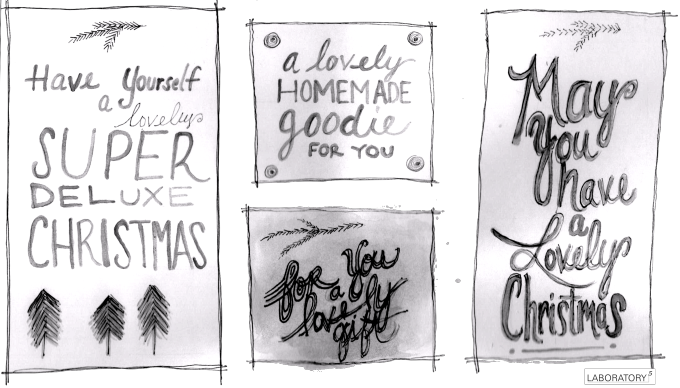 Have Yourself
a
lovely
SUPER
DELUXE
CHRISTMAS
a lovely
HOMEMADE
goodie
FOR YOU
for You
a
lovely
gift
May
you
have
a
Lovely
Christmas
LABORATORY5